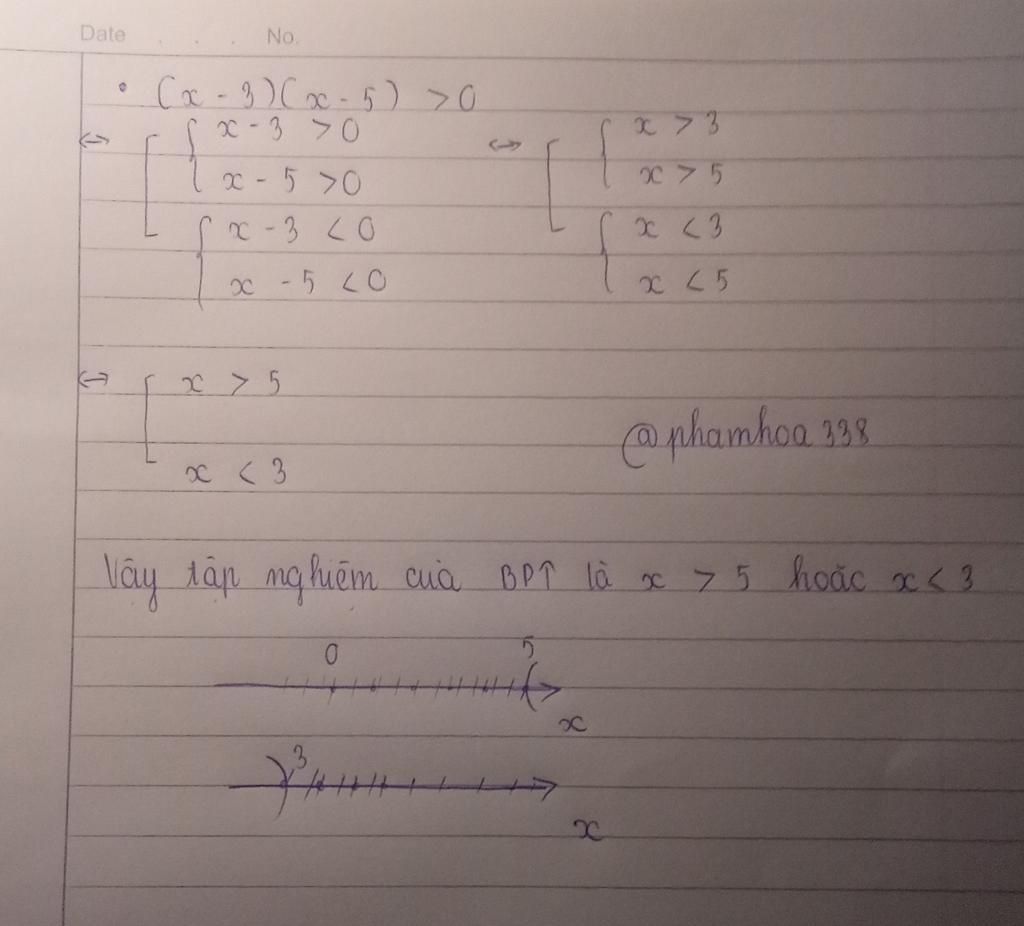 Date . . . No.
• (x - 3)(x - 5) > 0
↔ [ { x - 3 > 0 ↔ [ { x > 3
x - 5 > 0 x > 5
{ x - 3 < 0 { x < 3
x - 5 < 0 x < 5
↔ [ x > 5
@phamhoa338
x < 3
Vậy tập nghiệm của BPT là x > 5 hoặc x < 3
0 5
x
3
x